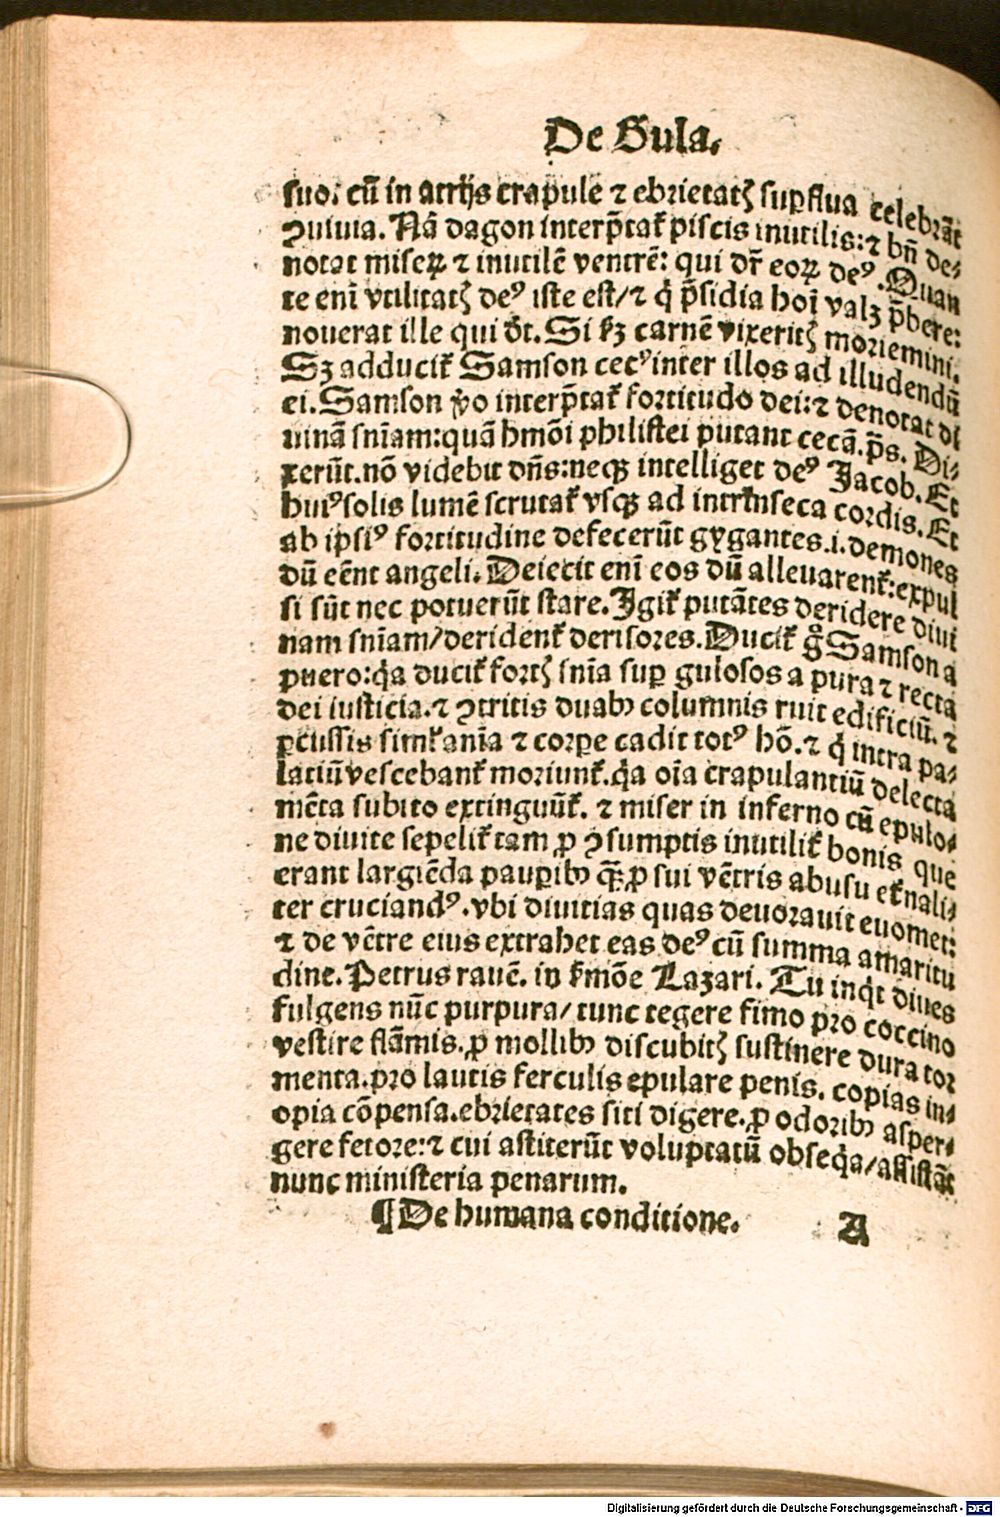 De Gula.
suo. cũ in atrijs crapule ⁊ ebrietatꝭ suꝑflua celebrãt
ꝯuiuia. Nã dagon interp̃tat᷑ piscis inutilis: ⁊ bñ de⸗
notat miseꝝ ⁊ inutilẽ ventrẽ: qui dr̃ eoꝝ deꝰ. Quan
te eni vtilitatꝭ deꝰ iste est/ ⁊ q̃ p̃sidia hoĩ valꝫ p̃bere:
nouerat ille qui dt. Si ẜꝫ carnẽ vixeritꝭ moriemini.
Sꝫ adducit᷑ Samson cecꝰ inter illos ad illudendũ
ei. Samson ṽo interp̃tat᷑ fortitudo dei: ⁊ denotat di
uinã sñiam: quã hmõi philistei putant cecã. p̃s. Di⸗
xerũt. nõ videbit dñs: neqꝫ intelliget deꝰ Jacob. Et
huiꝰ solis lumẽ scrutat᷑ vsqꝫ ad intrinseca cordis. Et
ab ipsiꝰ fortitudine defecerũt gygantes .i. demones
dũ eẽnt angeli. Deiecit eni eos dũ alleuarent᷑: expul
si sũt nec potuerũt stare. Igit᷑ putãtes deridere diui
nam sñiam/ derident᷑ derisores. Ducit᷑ g̊ Samson a
puero: q̃a ducit᷑ fortꝭ sñia suꝑ gulosos a pura ⁊ recta
dei iusticia. ⁊ ꝯtritis duabꝰ columnis ruit edificiũ. ⁊
ꝑcussis simĺ ania ⁊ corpe cadit totꝰ hõ. ⁊ q̃ intra pa⸗
latiũ vescebant᷑ moriunt᷑. q̃a oĩa crapulantiũ delecta
mẽta subito extinguũt᷑. ⁊ miser in inferno cũ epulo⸗
ne diuite sepelit᷑ tam ꝓ ꝯsumptis inutilit᷑ bonis que
erant largiẽda pauꝑibꝰ q̃ꝫ ꝓ sui vẽtris abusu et᷑nali⸗
ter cruciandꝰ. vbi diuitias quas deuorauit euomet:
⁊ de vẽtre eius extrahet eas deꝰ cũ summa amaritu
dine. Petrus rauẽ. in ẜmõe Lazari. Tu inq̃t diues
fulgens nũc purpura/ tunc tegere fimo pro coccino
vestire flãmis. ꝓ mollibꝰ discubitꝭ sustinere dura tor
menta. pro lautis ferculis epulare penis. copias in⸗
opia cõpensa. ebrietates siti digere. ꝓ odoribꝰ asper⸗
gere fetore: ⁊ cui astiterũt voluptatũ obseq̃a/ assistãt
nunc ministeria penarum.
¶ De humana conditione. A
Digitalisierung gefördert durch die Deutsche Forschungsgemeinschaft - DFG